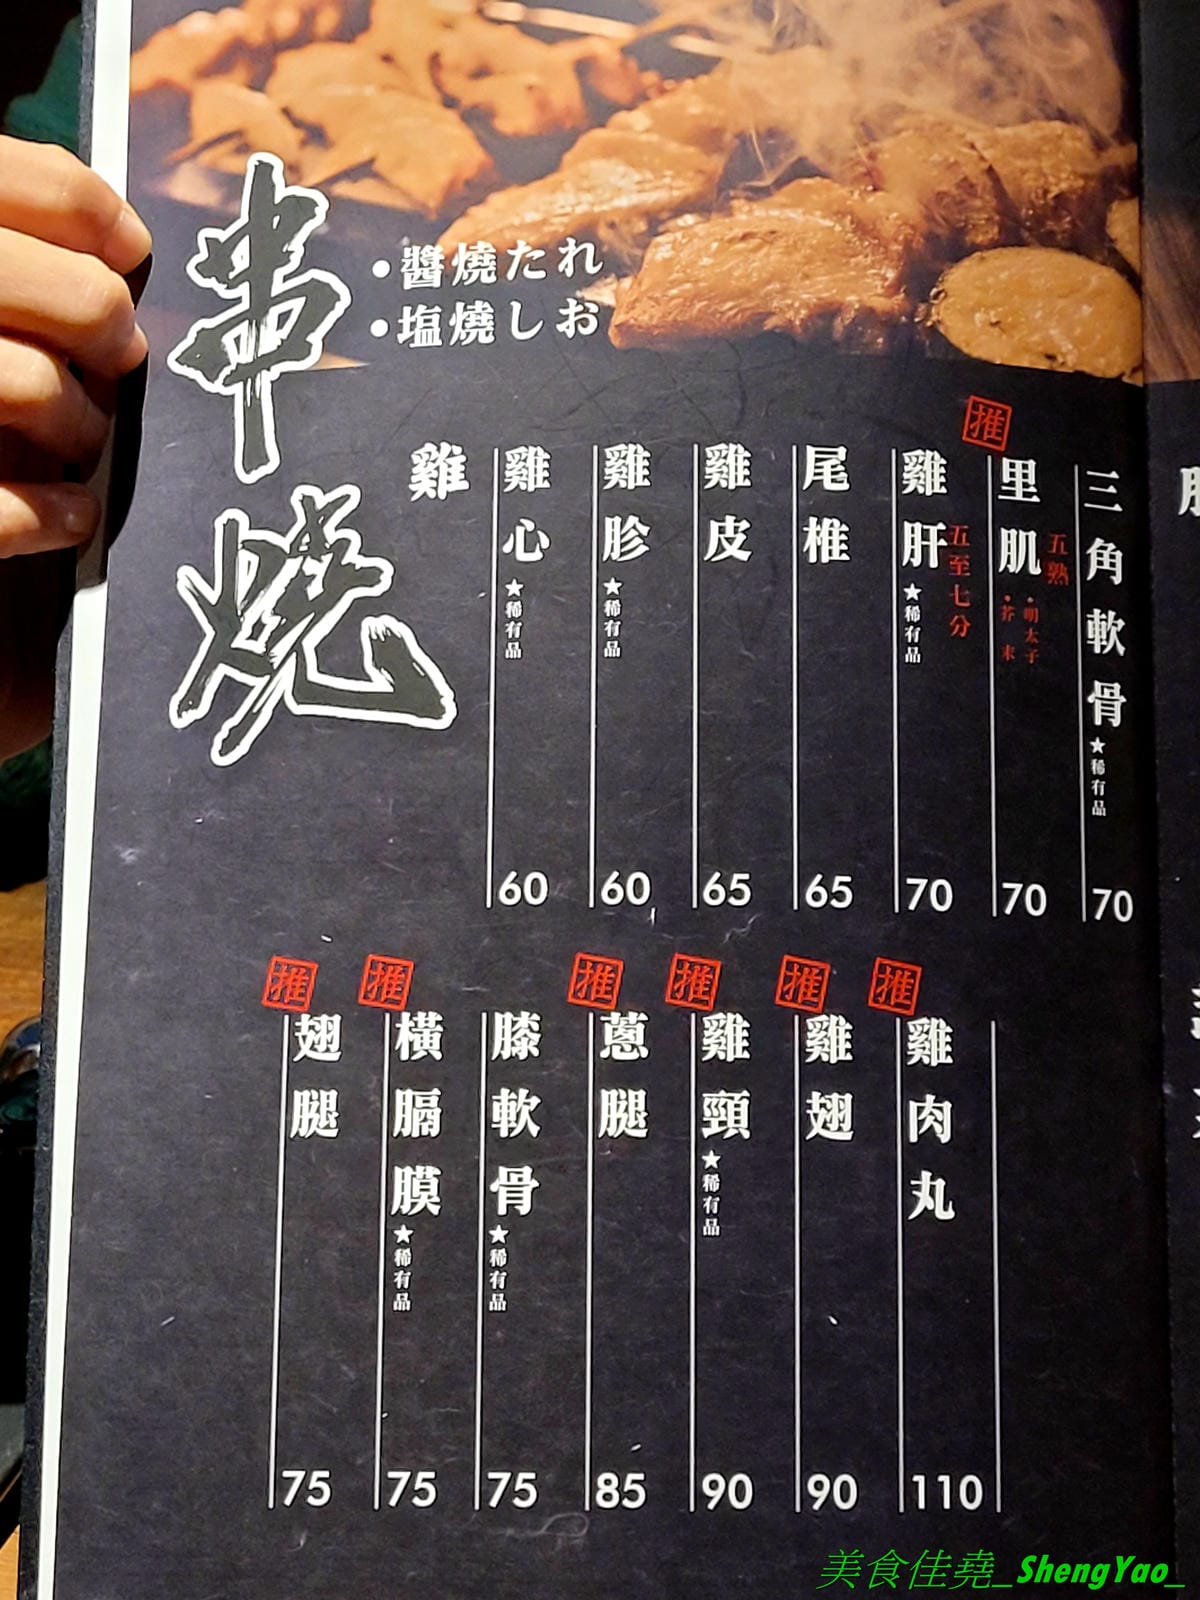 串燒
•醬燒たれ
•塩燒しお
雞
雞心★稀有品
60
雞胗★稀有品
60
雞皮
65
尾椎
65
雞肝★稀有品
五至七分
70
推
里肌
五熟
•明太子
•芥末
70
三角軟骨★稀有品
70
推
翅腿
75
推
橫膈膜★稀有品
75
膝軟骨★稀有品
75
推
蔥腿
85
推
雞頸★稀有品
90
推
雞翅
90
推
雞肉丸
110
美食佳堯_ShengYao_